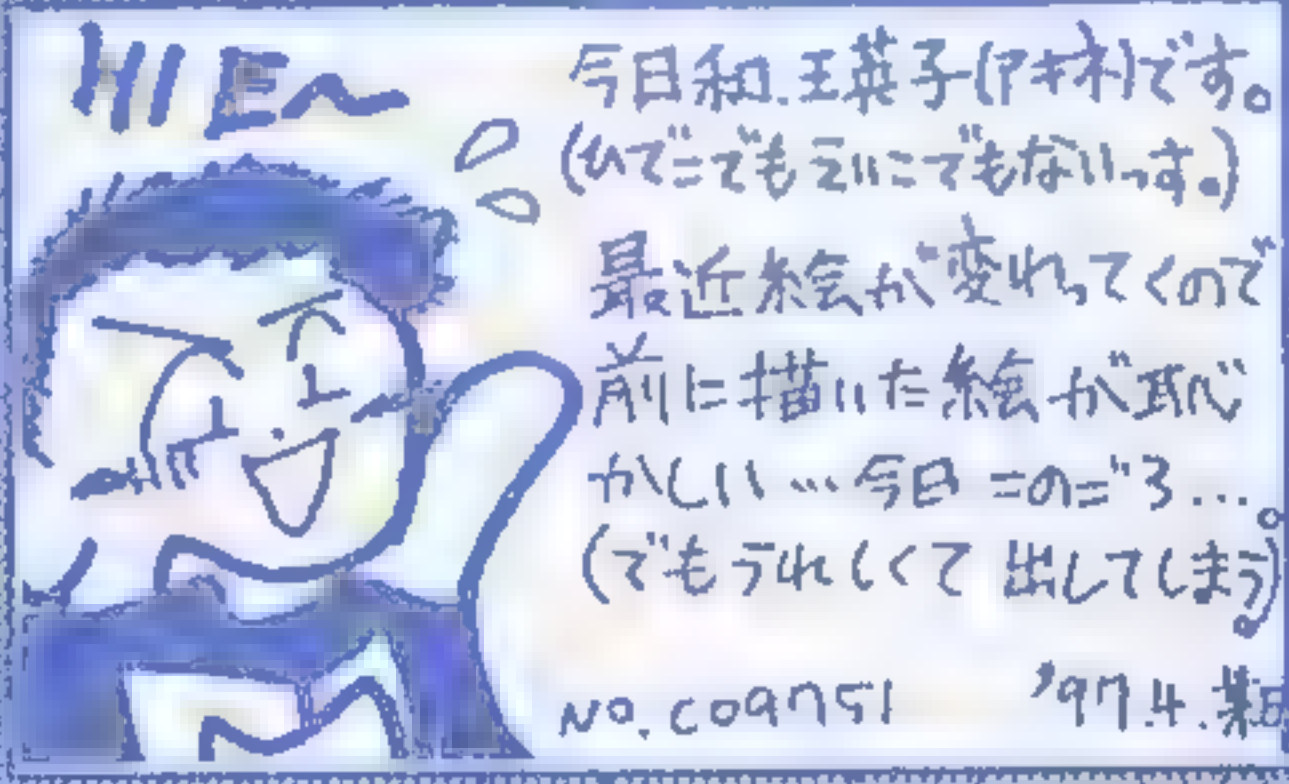 HIE〜
今日和.王英子(アキネ)です。
(ひでこでもえいこでもないっす。)
最近絵が変れってくので
前に描いた絵が恥べ
かしい…今日このごろ…。
(でもうれしくて出してしまう。)
NO.C09751 '97.4.